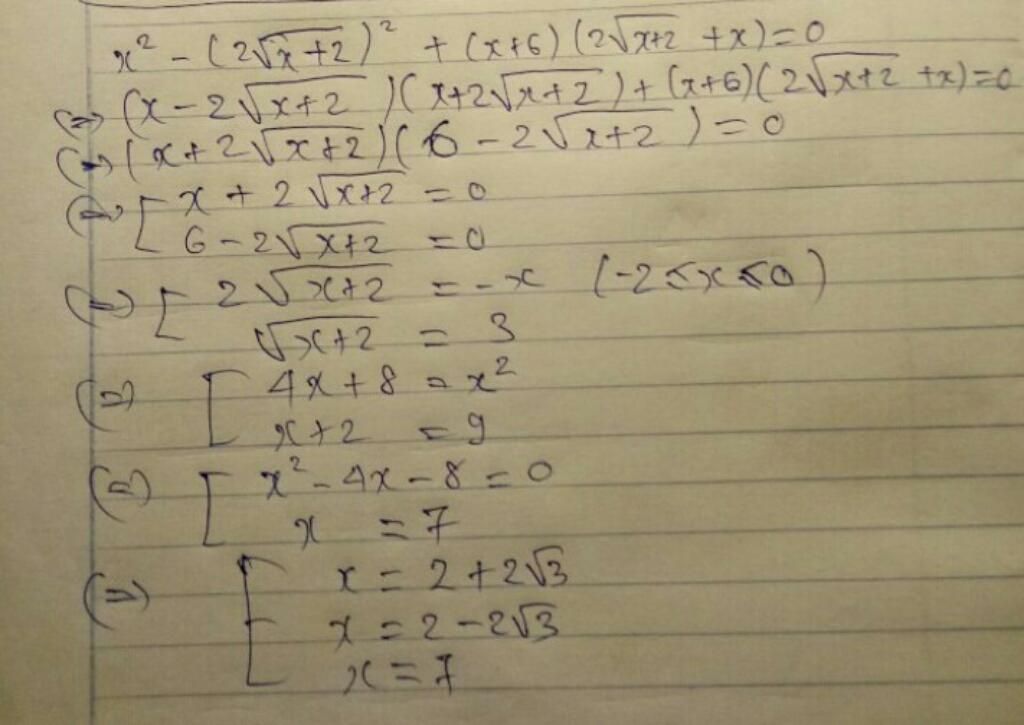 x² - (2√x+2)² + (x+6)(2√x+2 +x)=0
(=) (x-2√x+2)(x+2√x+2)+(x+6)(2√x+2 +x)=0
(=) (x+2√x+2)(6-2√x+2)=0
(=) [ x + 2√x+2 = 0
6-2√x+2 = 0
(=) [ 2√x+2 = -x (-2≤x≤0)
√x+2 = 3
(=) [ 4x+8 = x²
x+2 = 9
(=) [ x²-4x-8=0
x = 7
(=) [ x = 2+2√3
x = 2-2√3
x = 7